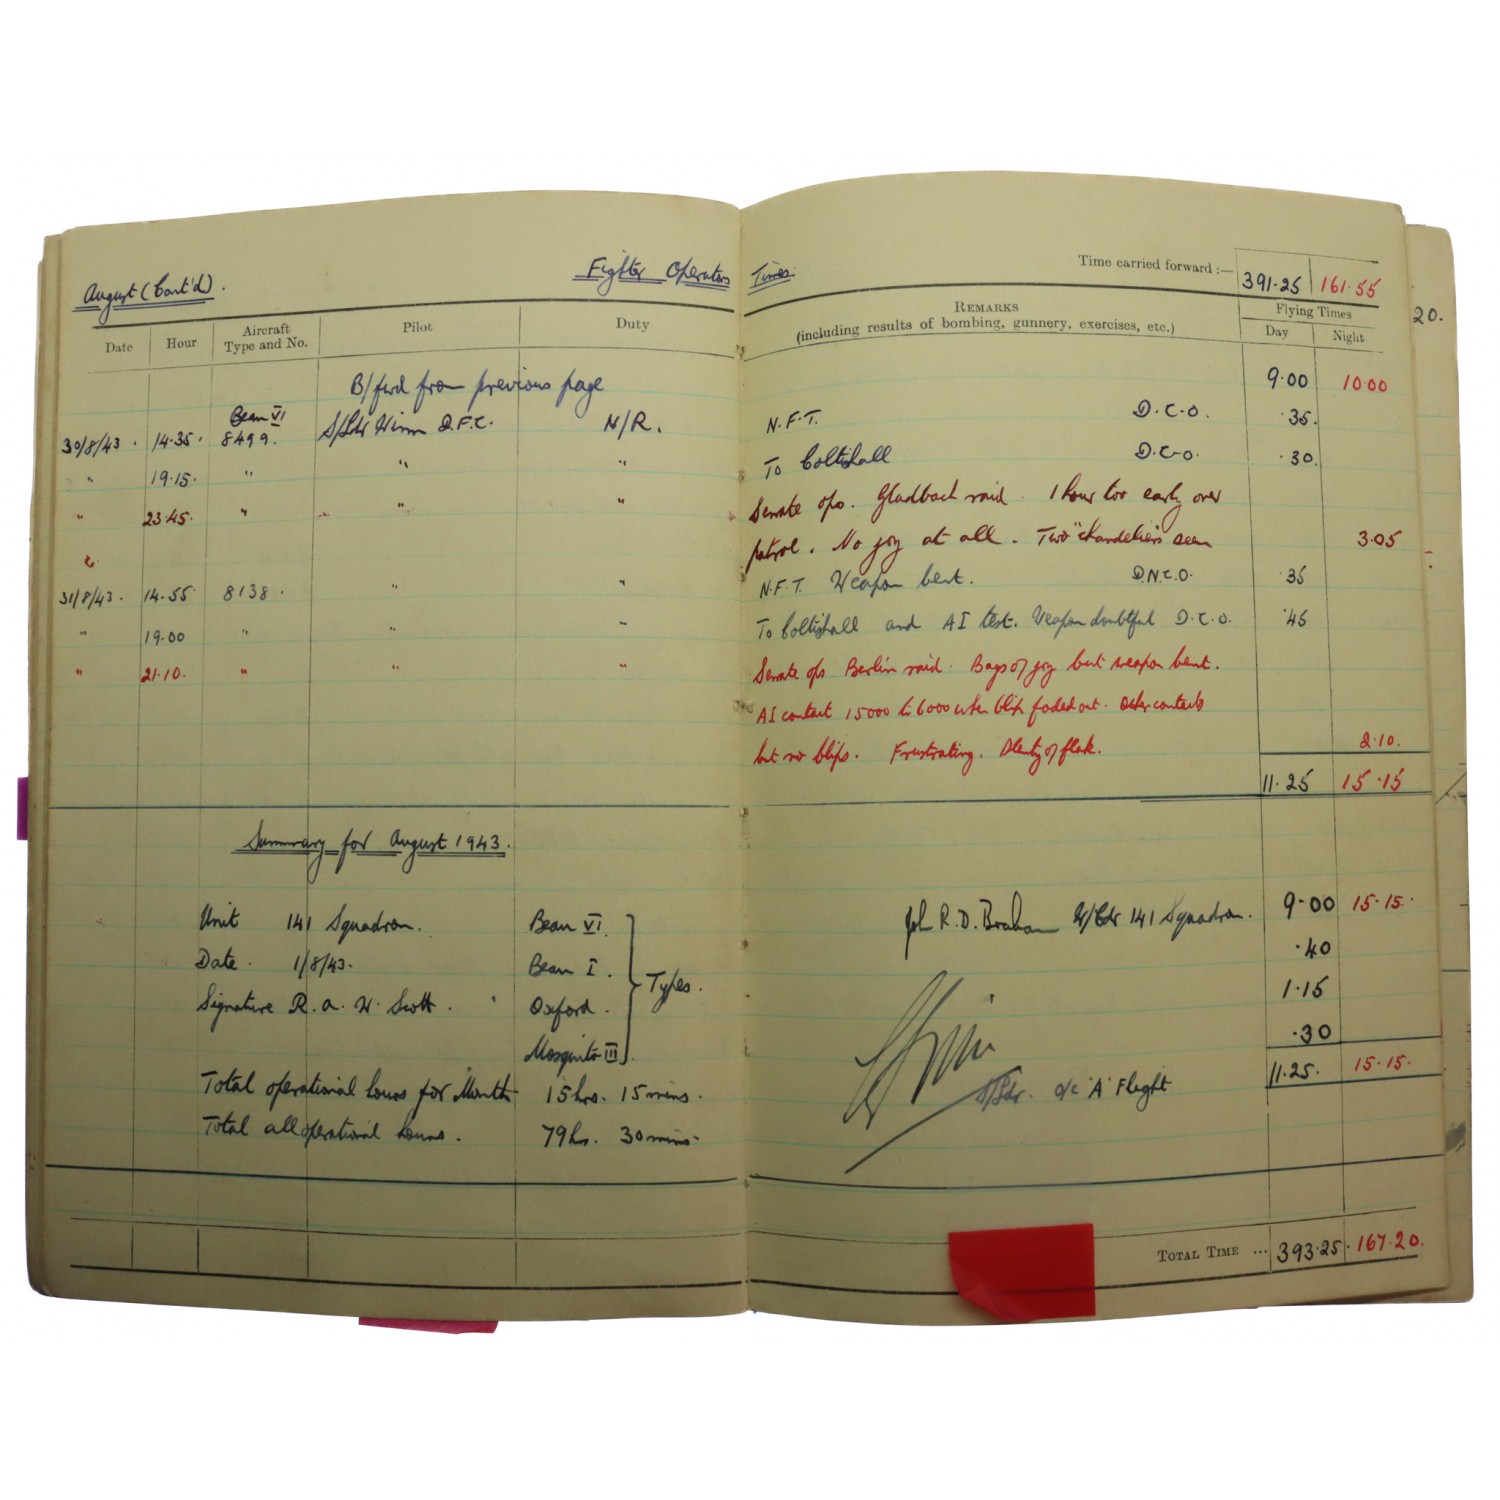 August (Cont'd).
Fighter Operators Times
Time carried forward :— 391.25 161.55
Date Hour Aircraft Type and No. Pilot Duty REMARKS (including results of bombing, gunnery, exercises, etc.) Flying Times Day Night
20.
B/fwd from previous page 9.00 10.00
30/8/43. 14.35. Beau VI 8499. S/Ldr Winn D.F.C. N/R. N.F.T. D.C.O. .35.
" 19.15. " " " To Coltishall D.C.O. .30.
" 23.45. " " " Serrate ops. Gladbach raid. 1 hour too early over
patrol. No joy at all. Two "chandeliers" seen 3.05
31/8/43. 14.55 8138. " " N.F.T. Weapon bent. D.N.C.O. .35
" 19.00 " " " To Coltishall and AI test. Weapon doubtful D.C.O. .45
" 21.10. " " " Serrate ops Berlin raid. Bags of joy but weapon bent.
AI contact 15000 to 6000 when blip faded out. Other contacts
but no blips. Frustrating. Plenty of flak. 2.10.
11.25 15.15
Summary for August 1943.
Unit 141 Squadron. Beau VI. John R.D. Braham W/Cdr 141 Squadron. 9.00 15.15.
Date. 1/8/43. Beau I. Types. .40
Signature R.A.W. Scott. Oxford. 1.15
Mosquito III .30
Total operational hours for Month 15 hrs. 15 mins. S/Ldr. o/c 'A' Flight 11.25. 15.15.
Total all operational hours. 79 hrs. 30 mins.
TOTAL TIME ... 393.25. 167.20.